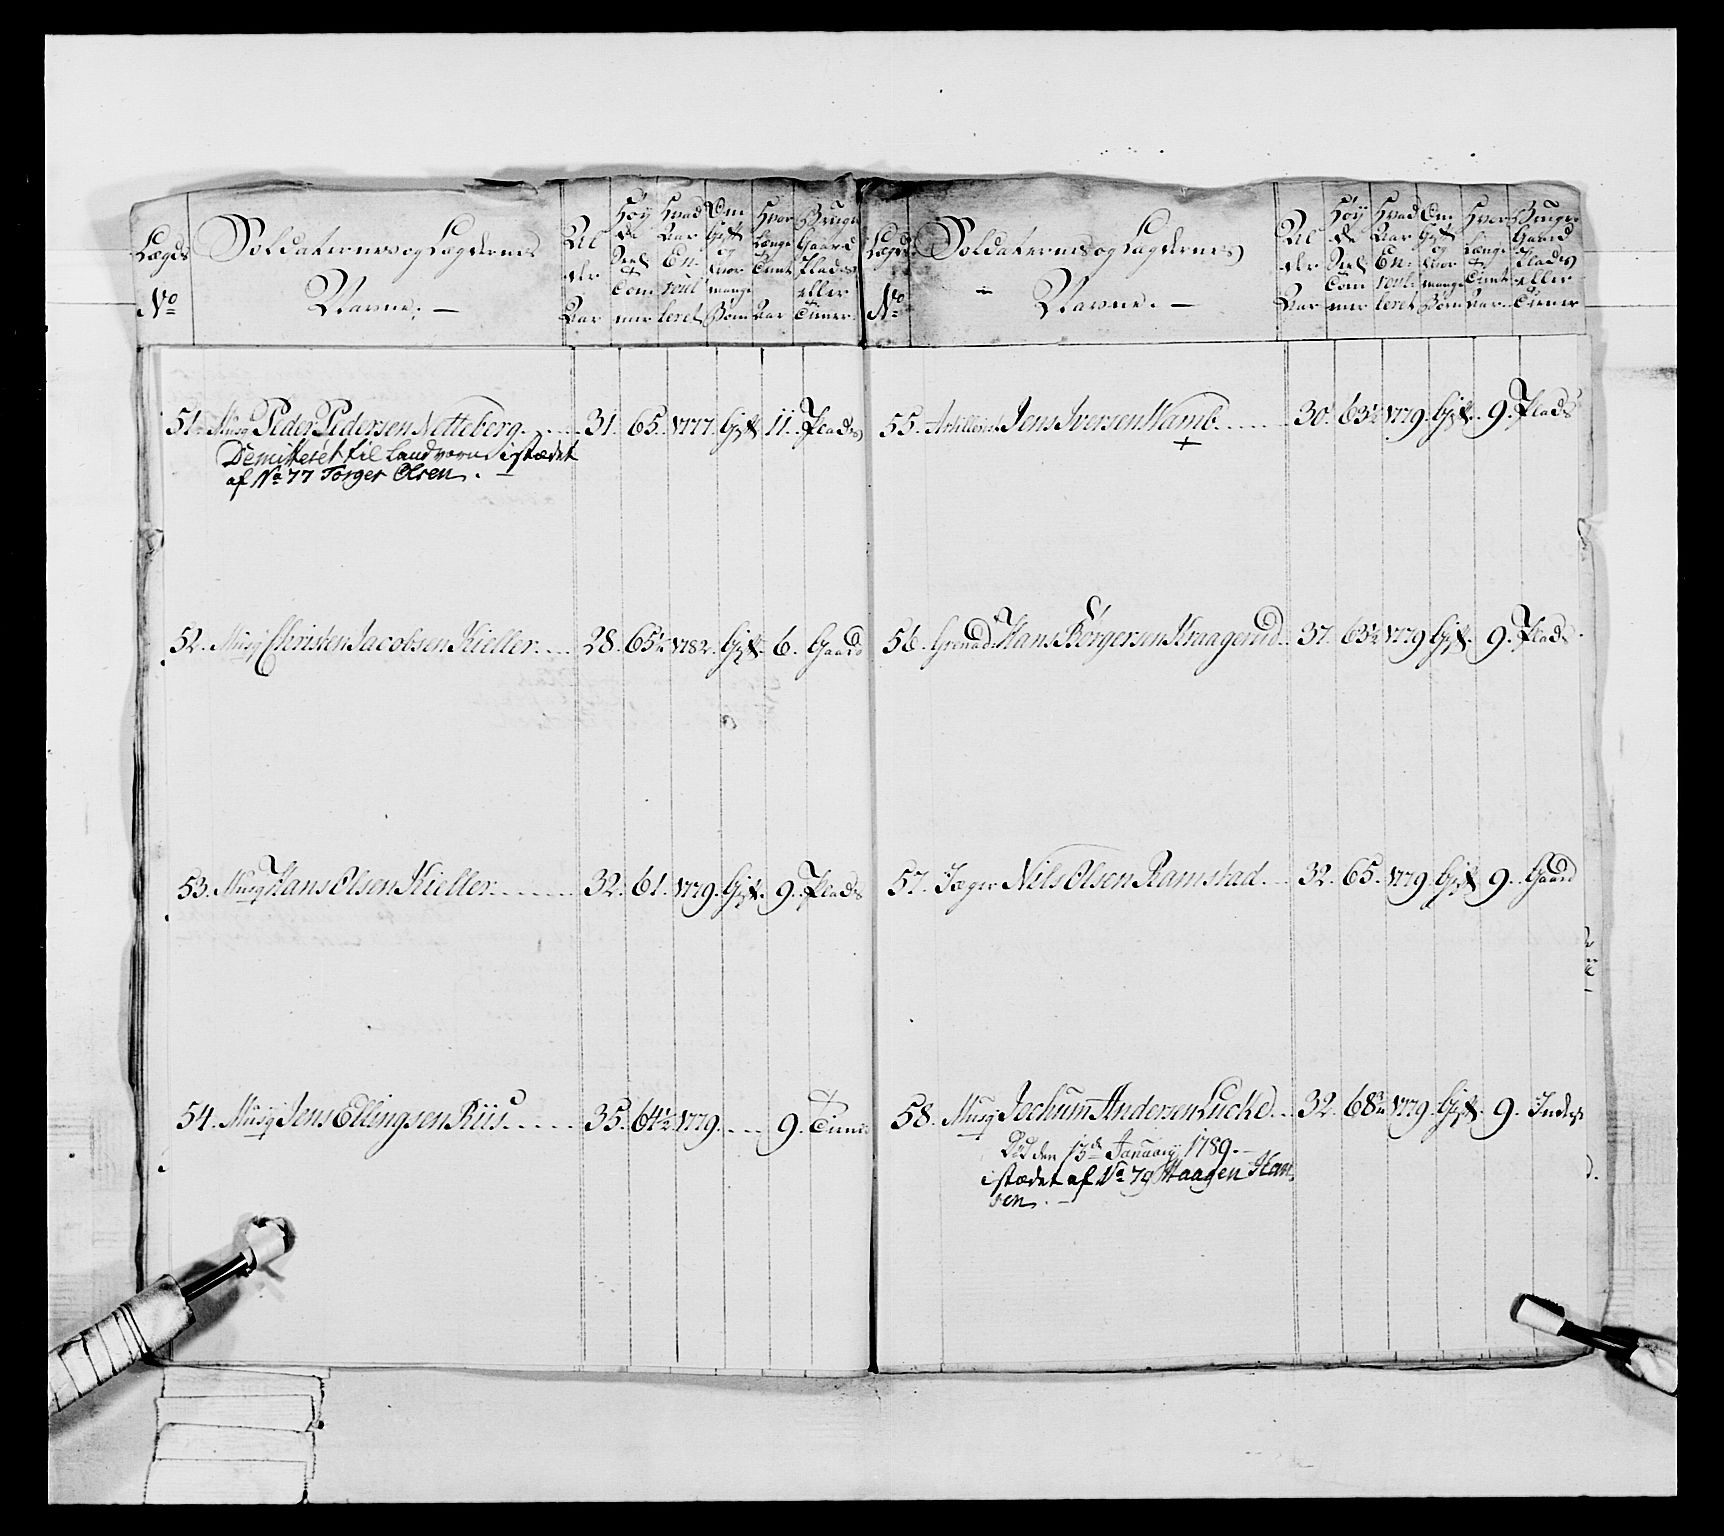 Lægds
No
Soldaternes og Lægdernes
Navne. —
Al
der
Aar
Høy
de
Tom
mer
Hvad
Aar
En-
roul
leret
Om
Gift
og
hvor
mange
Børn
Hvor
længe
tient
Aar
Bruger
Gaard
Plads
eller
Tiener
51. Musq Peder Pedersen Netteberg. 31. 65. 1777. Gift. 11. Plads
Demitteret til Landværn istædet
af No 77 Torger Olsen. —
52. Musq Christen Jacobsen Kieller. 28. 65½. 1782. Gift. 6. Gaard
53. Musq Hans Olsen Kieller. 32. 61. 1779. Gift. 9. Plads
54. Musq Jens Ellingsen Riis. 35. 64½. 1779. 9. Tiener
Lægds
No
Soldaternes og Lægdernes
Navne. —
Al
der
Aar
Høy
de
Tom
mer
Hvad
Aar
En-
roul-
leret
Om
Gift
og
hvor
mange
Børn
Hvor
længe
tient
Aar.
Bruger
Gaard
Plads
eller
Tiener
55. Artillerist Jens Iversen Wamb. 30. 63½ 1779. Gift. 9. Plads
+
56. Grenad. Hans Børgersen Kraagerud. 37. 63½ 1779 Gift. 9. Plads.
57. Jæger Nils Olsen Ramstad. 32. 65. 1779. Gift 9. Gaard
58. Musq Jochum Andersen Lucke. 32. 68¾ 1779. Gift. 9. Inderst
Død den 13de January 1789. —
istædet af No 79 Haagen Han
sen. —